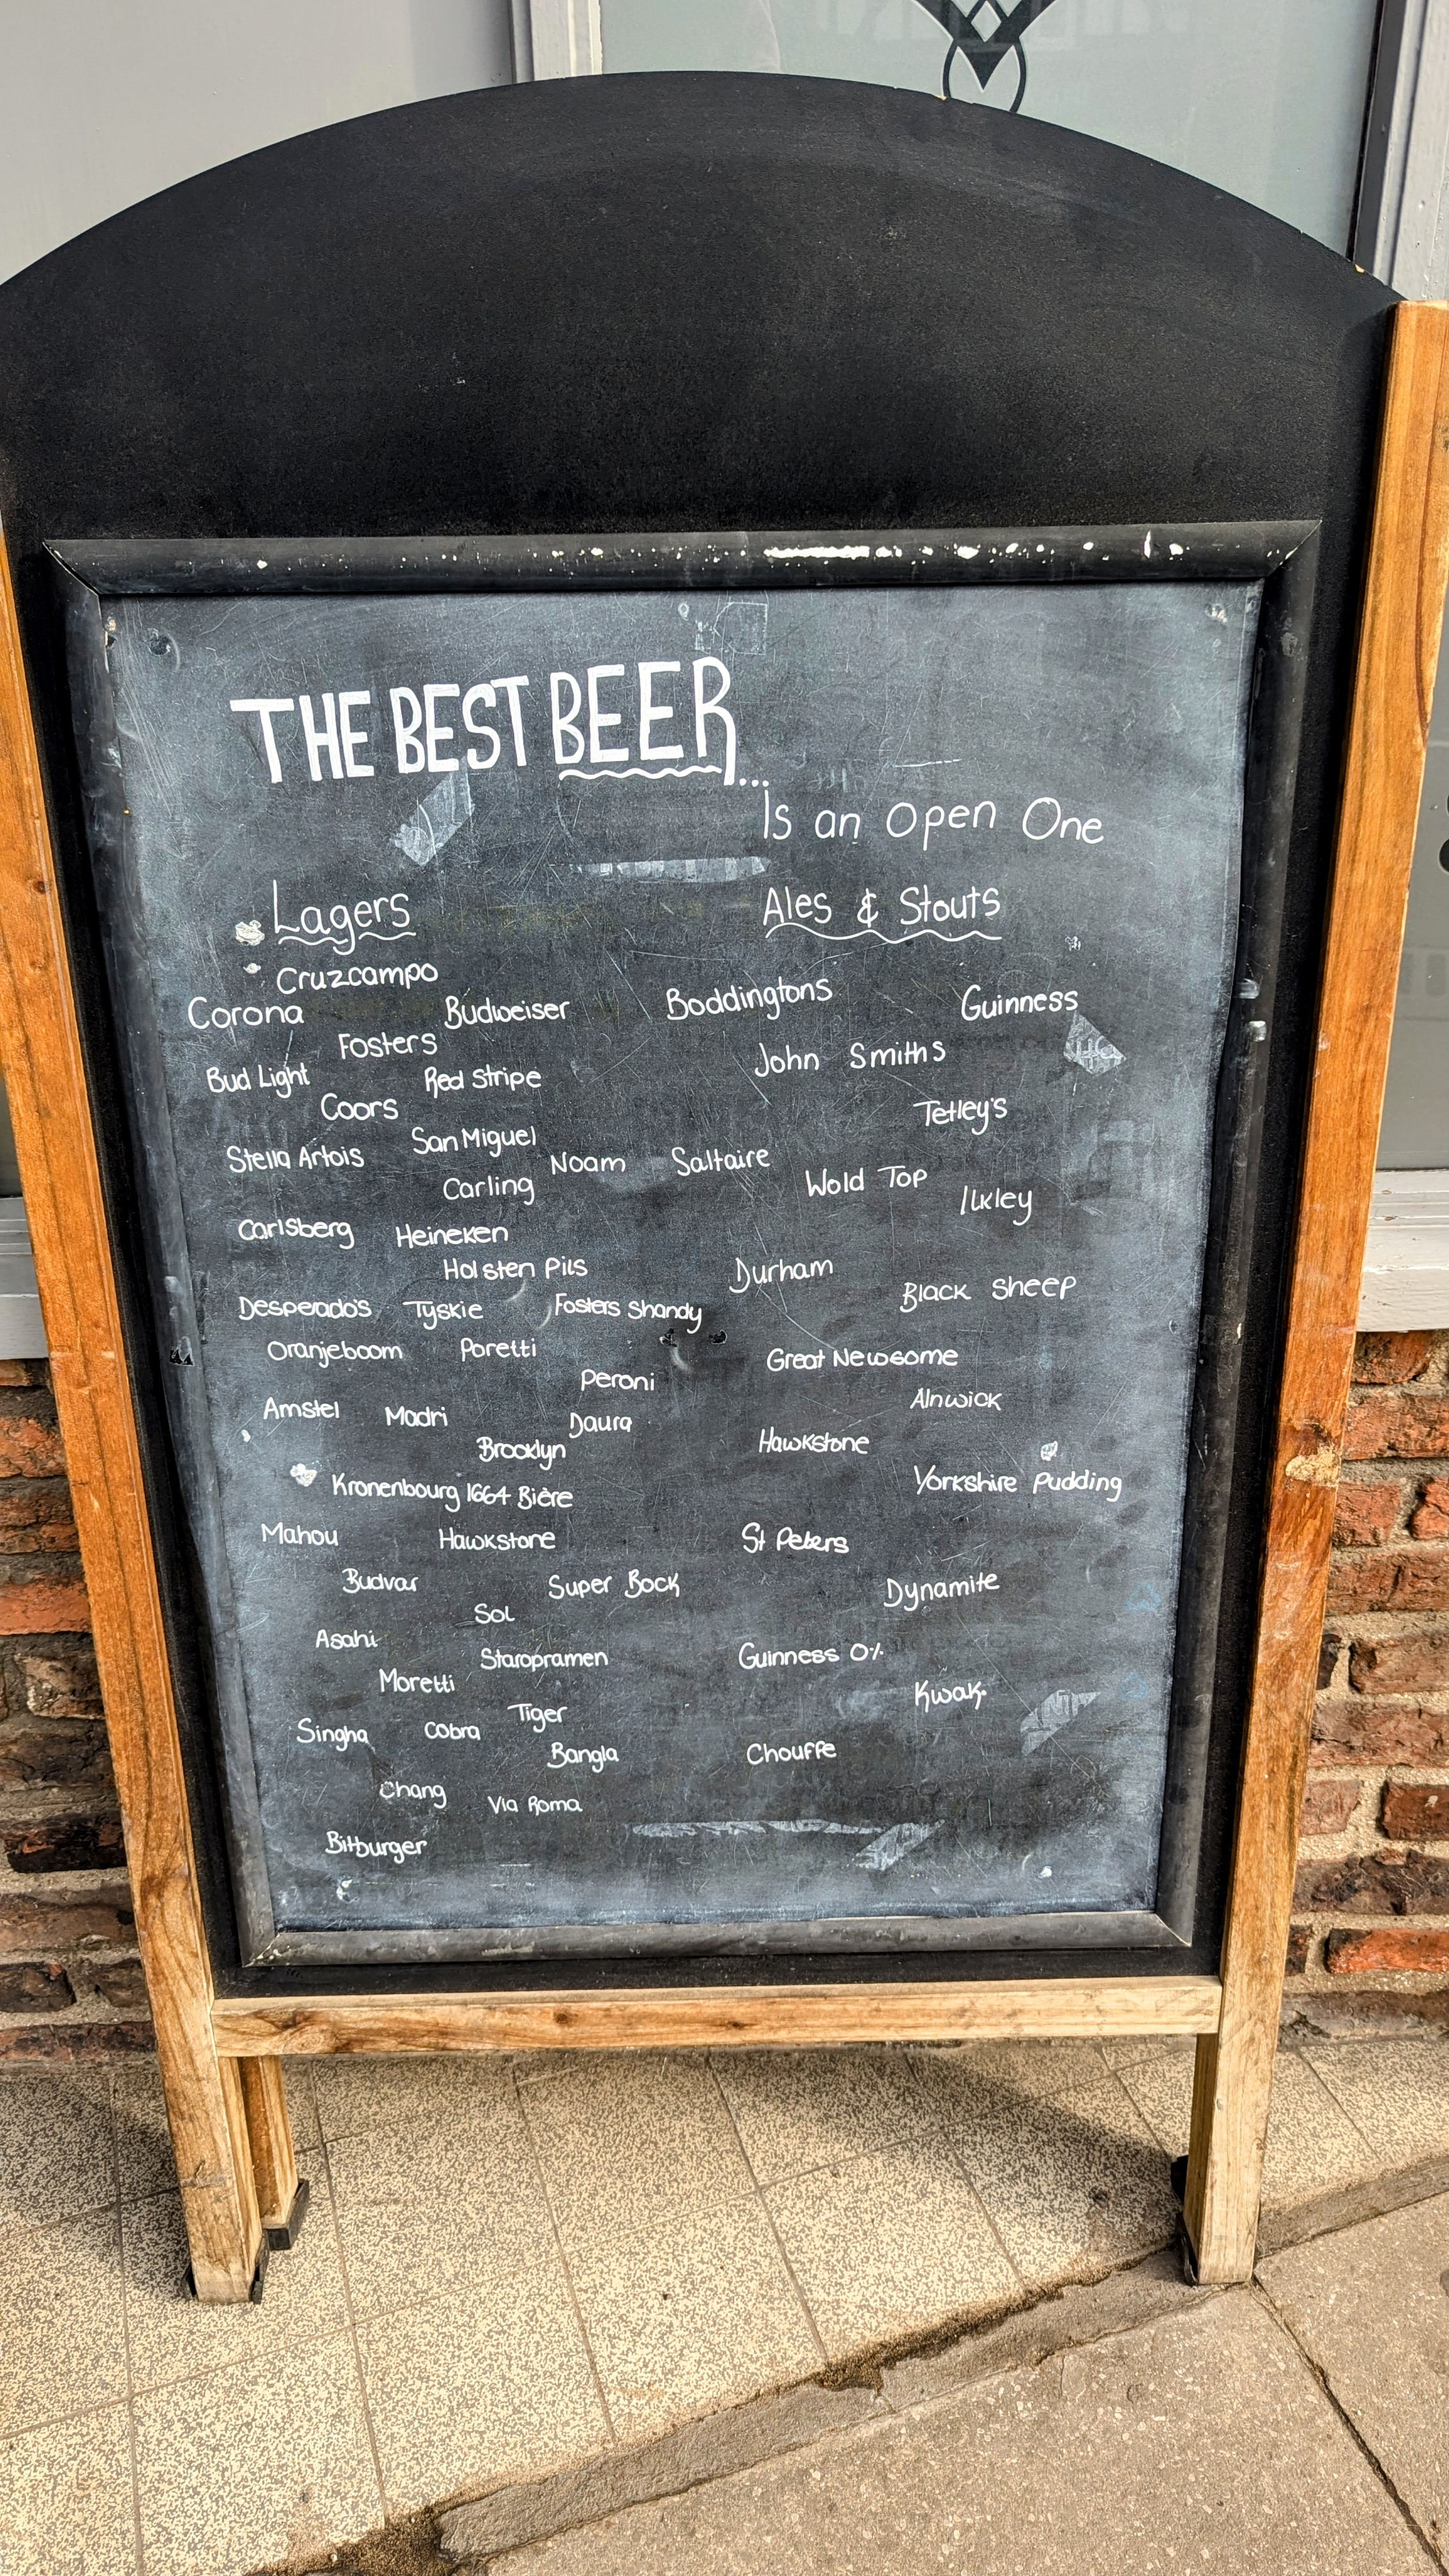 THE BEST BEER...
Is an Open One
Lagers
Cruzcampo
Corona Budweiser
Fosters
Bud Light Red Stripe
Coors
San Miguel
Stella Artois Noam
Carling
Carlsberg Heineken
Holsten Pils
Desperado's Tyskie Fosters Shandy
Oranjeboom Poretti
Peroni
Amstel Madri Daura
Brooklyn
Kronenbourg 1664 Bière
Mahou Hawkstone
Budvar Super Bock
Sol
Asahi
Staropramen
Moretti
Tiger
Singha Cobra
Bangla
Chang Via Roma
Bitburger
Ales & Stouts
Boddingtons Guinness
John Smiths
Tetley's
Saltaire Wold Top
Ilkley
Durham
Black Sheep
Great Newsome
Alnwick
Hawkstone
Yorkshire Pudding
St Peters
Dynamite
Guinness 0%
Kwak
Chouffe